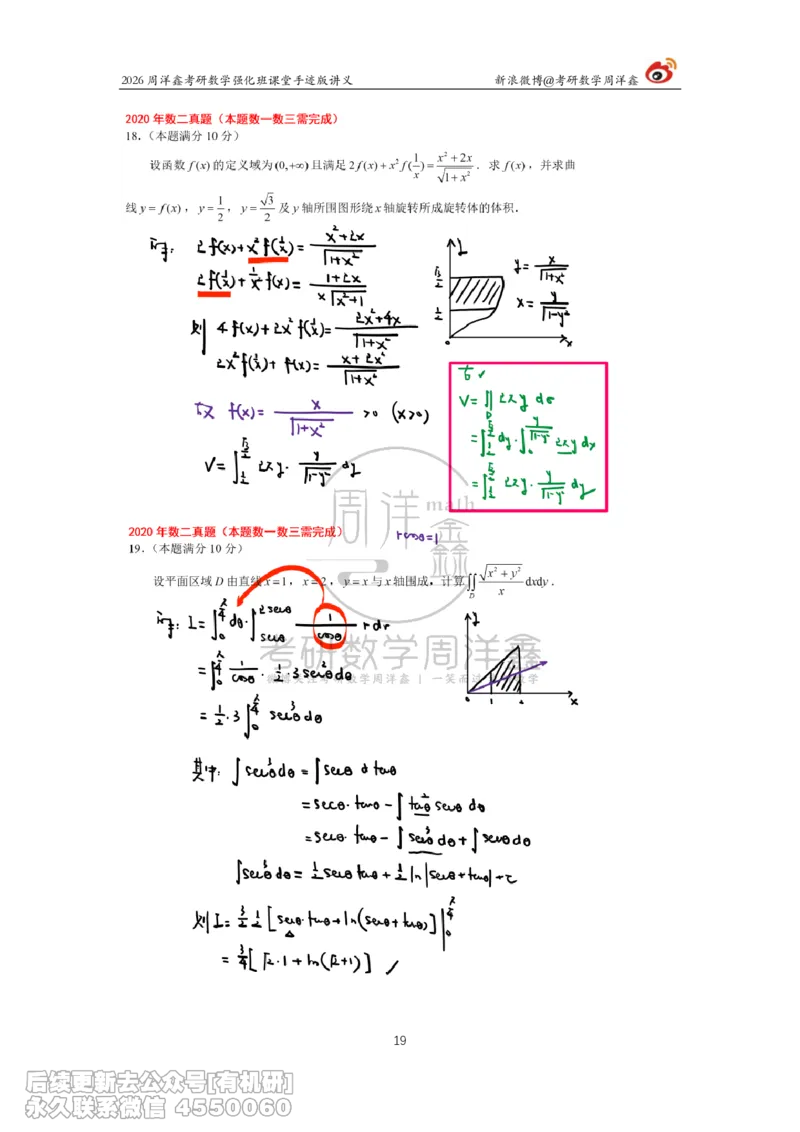 2026周洋鑫考研数学强化班课堂手迹版讲义 新浪微博@考研数学周洋鑫
2020年数二真题（本题数一数三需完成）
18.（本题满分10分）
设函数 f(x) 的定义域为(0,+∞)且满足 2f(x)+x²f(1/x)=(x²+2x)/√(1+x²). 求 f(x)，并求曲
线 y=f(x)，y=1/2，y=√3/2 及 y 轴所围图形绕 x 轴旋转所成旋转体的体积.
2f(x)+x²f(1/x)=(x²+2x)/√(1+x²)
2f(1/x)+1/x² f(x)=(1+2x)/(x√(x²+1))
则 4f(x)+2x²f(1/x)=(2x²+4x)/√(1+x²)
2x²f(1/x)+f(x)=(x+2x²)/√(1+x²)
f(x)=x/√(1+x²) >0 (x>0)
V=∫_{1/2}^{√3/2} 2πy·y/√(1-y²) dy
y
√3/2
1/2
0
x
y=x/√(1+x²)
x=y/√(1-y²)
V=∬_D 2πy dσ
=∫_{1/2}^{√3/2} dy·∫_0^{y/√(1-y²)} 2πy dx
=∫_{1/2}^{√3/2} 2πy·y/√(1-y²) dy
周洋鑫
math
2020年数二真题（本题数一数三需完成）
rcosθ=1
19.（本题满分10分）
设平面区域 D 由直线 x=1，x=2，y=x 与 x 轴围成，计算∬_D √(x²+y²)/x dxdy.
I=∫_0^{π/4} dθ·∫_{secθ}^{2secθ} 1/cosθ rdr
=∫_0^{π/4} 1/cosθ·1/2·3sec²θdθ
=1/2·3∫_0^{π/4} sec³θdθ
y
0
1
2
x
考研数学周洋鑫
其中: ∫sec³θdθ=∫secθ dtanθ
=secθ·tanθ-∫tan²θ secθ dθ
=secθ·tanθ-∫sec³θdθ+∫secθdθ
∫sec³θdθ=1/2 secθtanθ+1/2 ln|secθ+tanθ|+C
则 I=3/2·1/2[secθ·tanθ+ln(secθ+tanθ)]|_0^{π/4}
=3/4[√2·1+ln(√2+1)]
19
后续更新去公众号[有机研]
永久联系微信 4550060